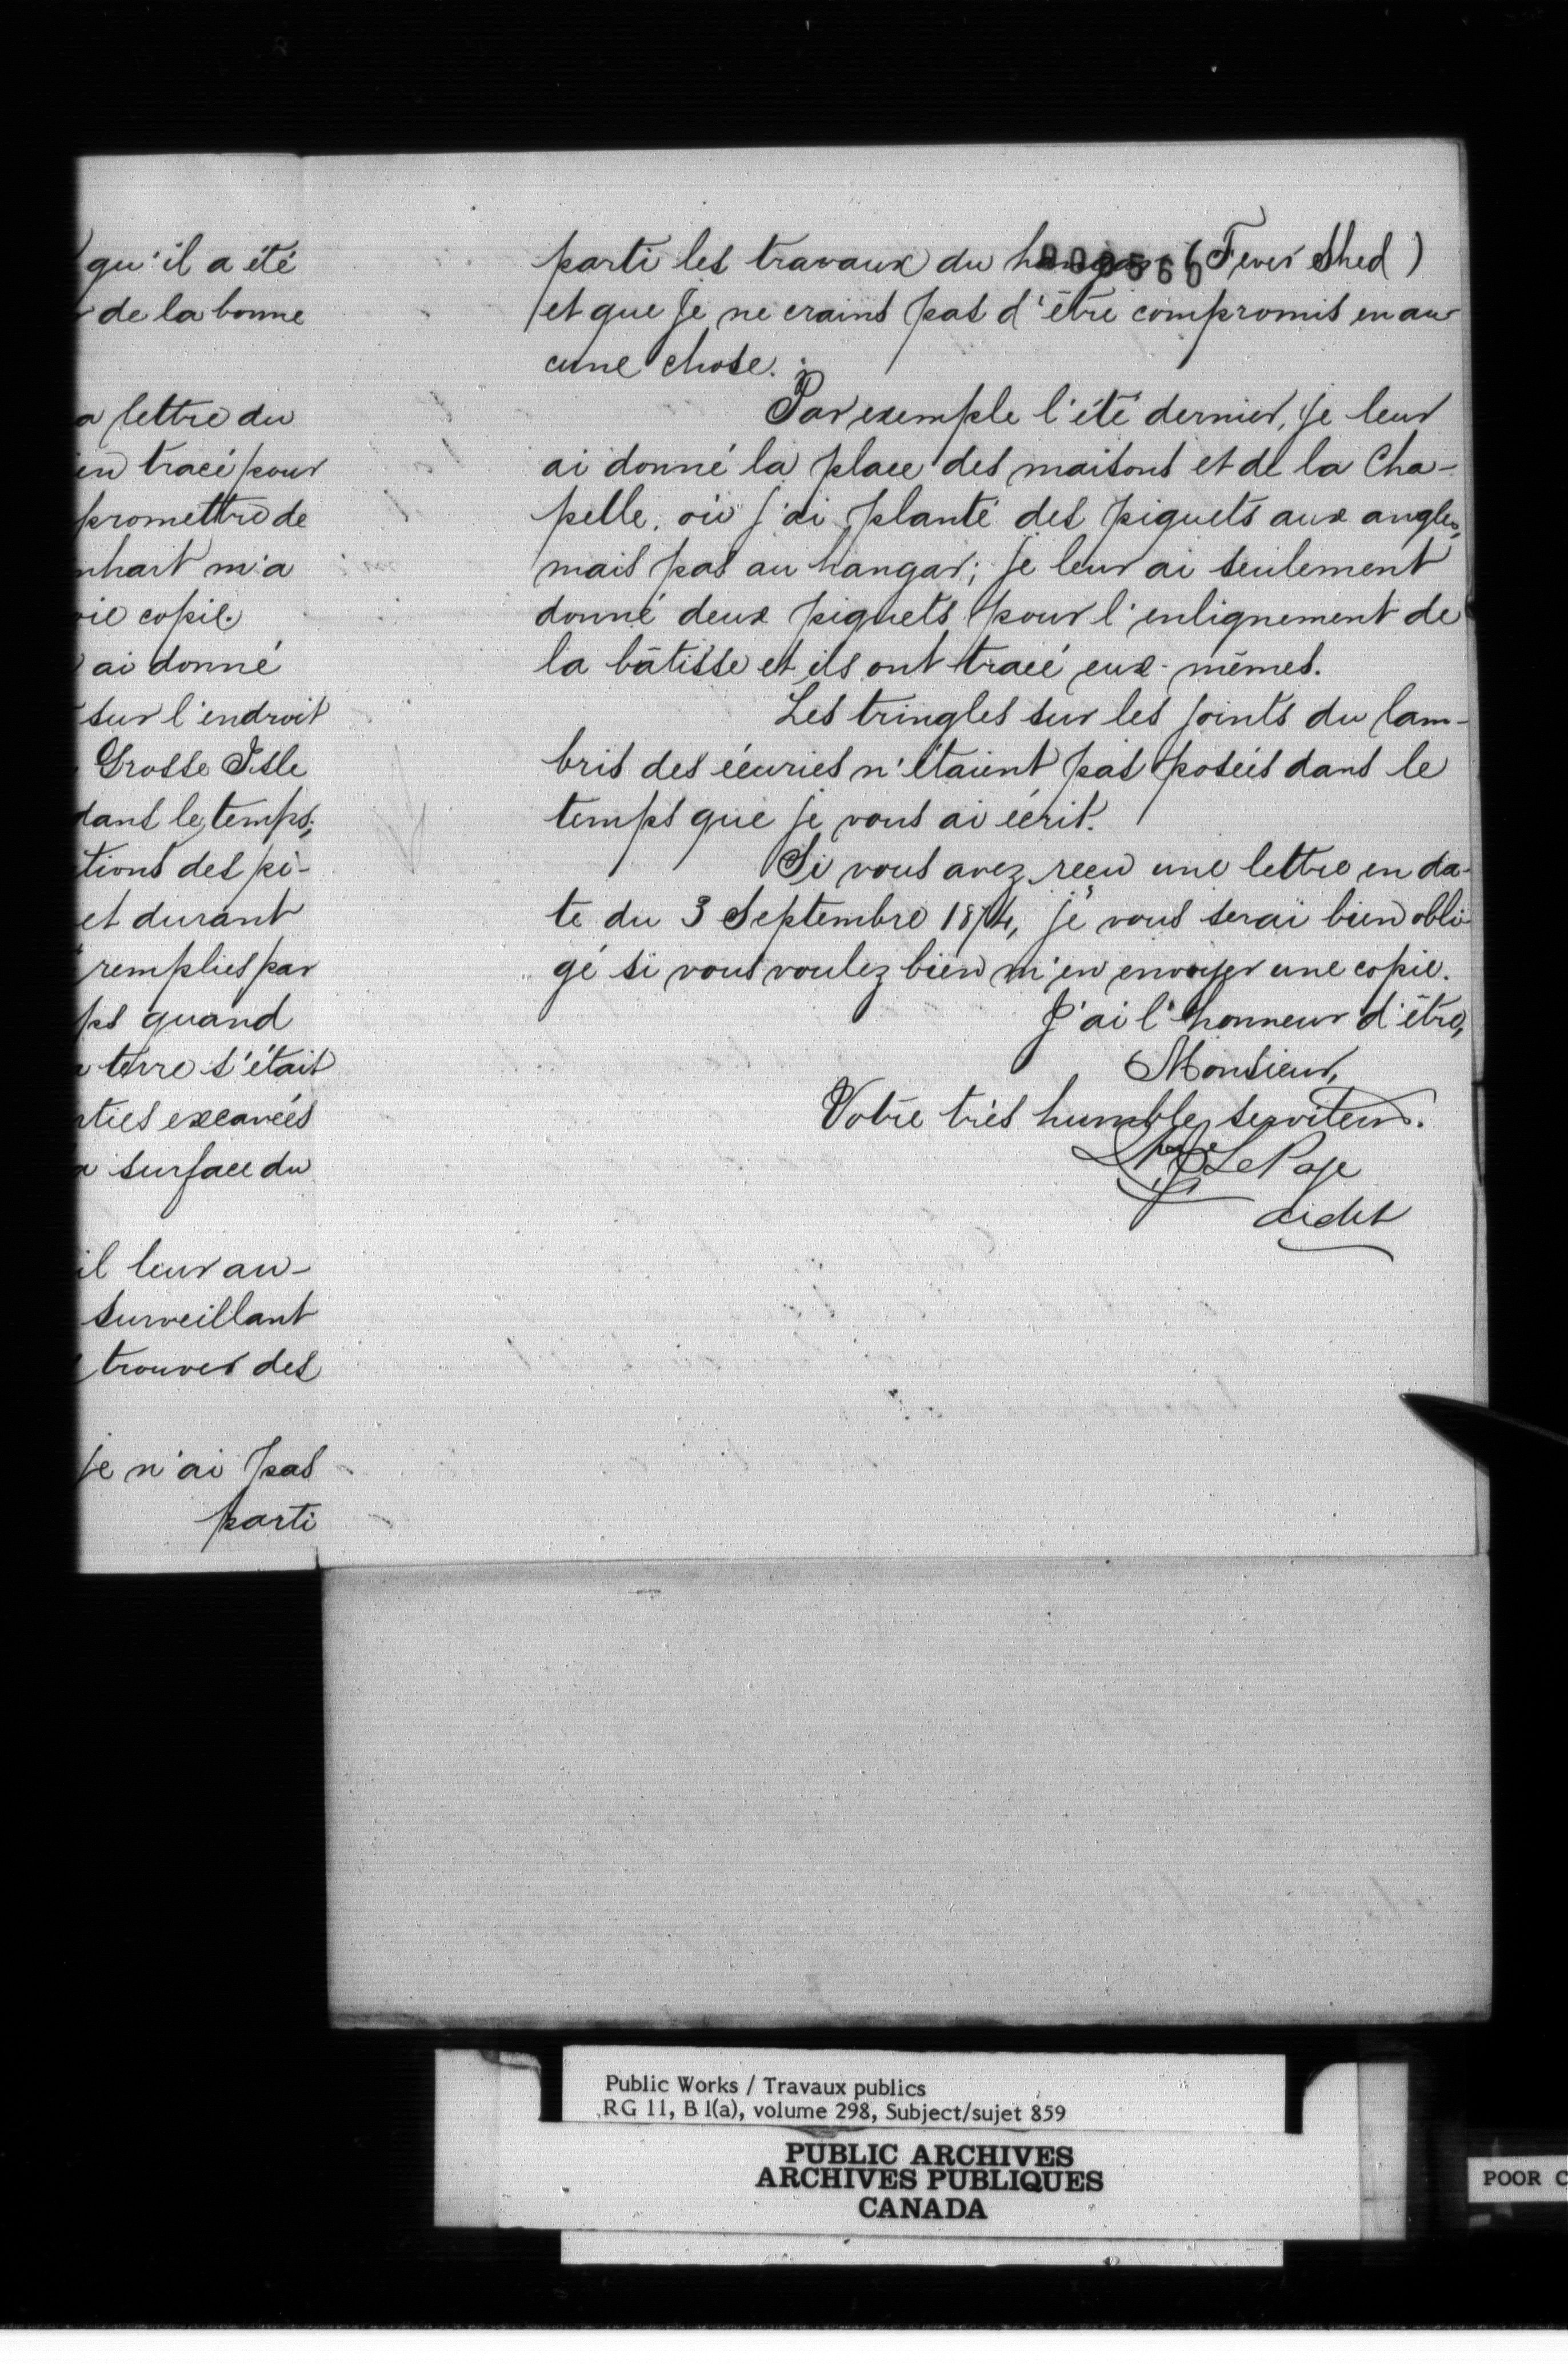 qu'il a été
de la bonne
a lettre du
en tracé pour
promettre de
nhart m'a
ie copie.
ai donné
sur l'endroit
Grosse Isle
dans le temps;
tions des pi-
et durant
remplies par
ps quand
terre s'était
ties excavées
surface du
il leur au-
surveillant
trouver des
je n'ai pas
parti
parti les travaux du hangar (Fever Shed)
et que je ne crains pas d'être compromis en au-
cune chose.
Par exemple l'été dernier, je leur
ai donné la place des maisons et de la Cha-
pelle, où j'ai planté des piquets aux angles,
mais pas au hangar; je leur ai seulement
donné deux piquets pour l'enlignement de
la bâtisse et ils ont tracé eux-mêmes.
Les tringles sur les joints du lam-
bris des écuries n'étaient pas posées dans le
temps que je vous ai écrit.
Si vous avez reçu une lettre en da-
te du 3 Septembre 1874, je vous serai bien obli-
gé si vous voulez bien m'en envoyer une copie.
J'ai l'honneur d'être,
Monsieur,
Votre très humble serviteur.
LePage
Public Works / Travaux publics
RG 11, B 1(a), volume 298, Subject/sujet 859
PUBLIC ARCHIVES
ARCHIVES PUBLIQUES
CANADA
POOR C